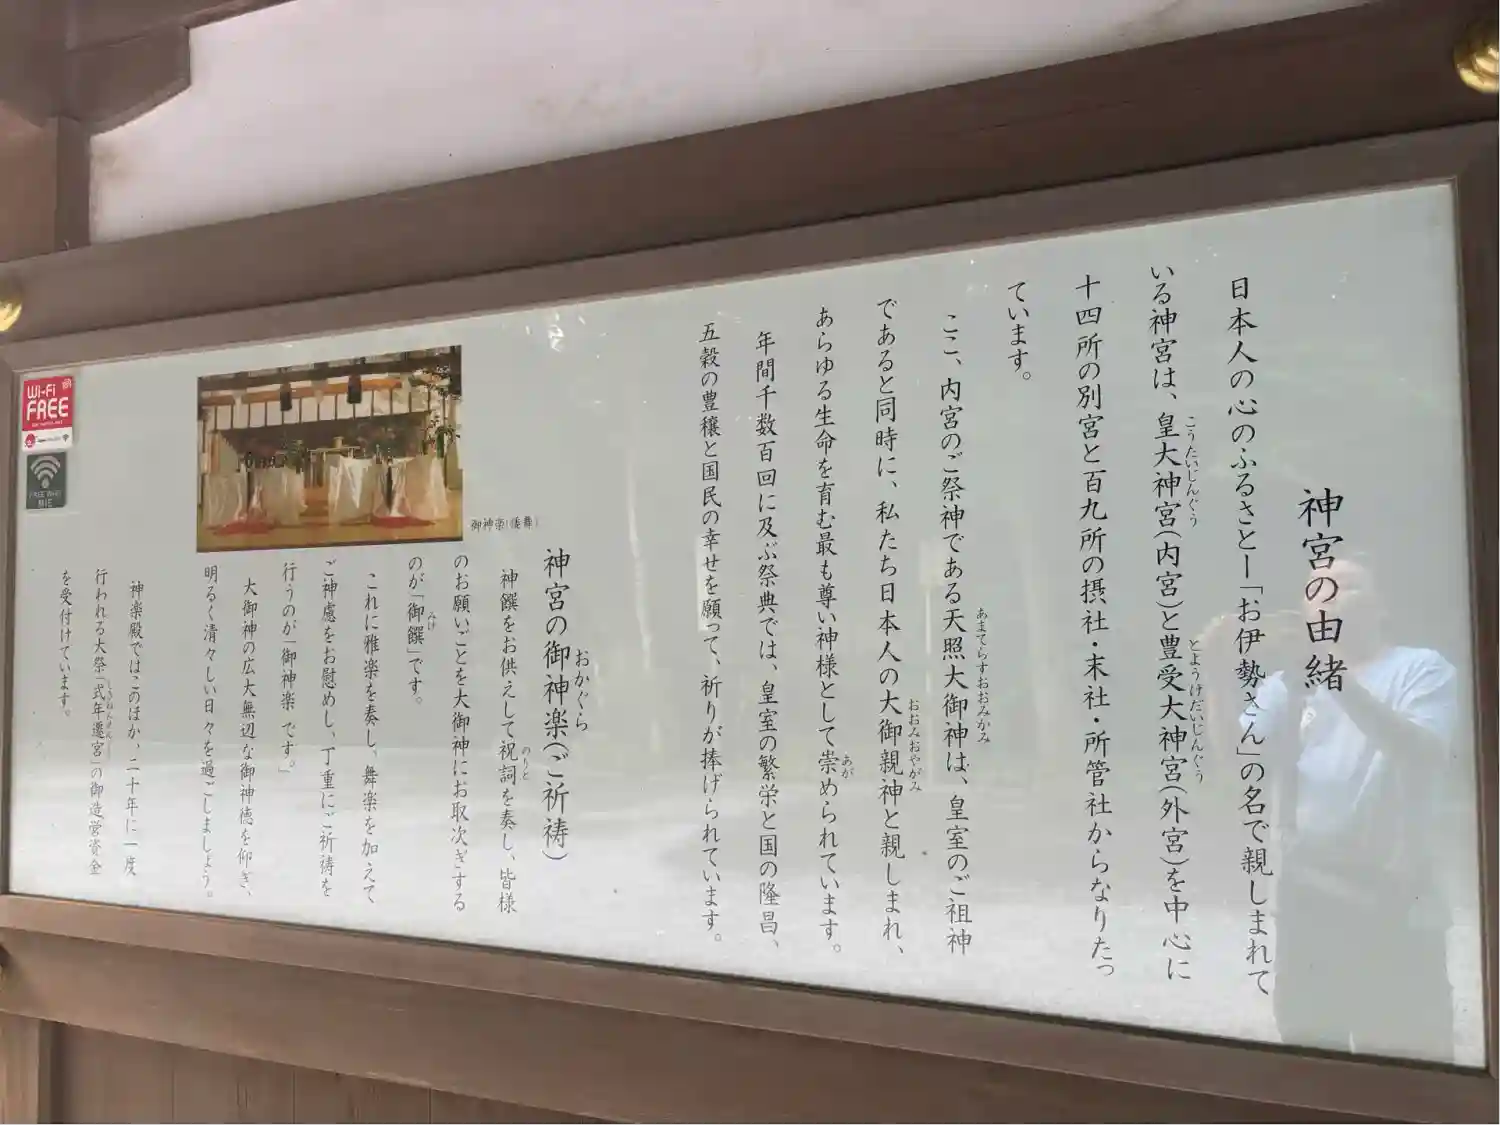 神宮の由緒
日本人の心のふるさとー「お伊勢さん」の名で親しまれて
いる神宮は、皇大神宮(内宮)と豊受大神宮(外宮)を中心に
こうたいじんぐう
とようけだいじんぐう
十四所の別宮と百九所の摂社・末社・所管社からなりたっ
ています。
ここ、内宮のご祭神である天照大御神は、皇室のご祖神
あまてらすおおみかみ
であると同時に、私たち日本人の大御親神と親しまれ、
おおみおやがみ
あらゆる生命を育む最も尊い神様として崇められています。
あが
年間千数百回に及ぶ祭典では、皇室の繁栄と国の隆昌、
五穀の豊穣と国民の幸せを願って、祈りが捧げられています。
神宮の御神楽(ご祈祷)
おかぐら
神饌をお供えして祝詞を奏し、皆様
のりと
のお願いごとを大御神にお取次ぎする
のが「御饌」です。
みけ
これに雅楽を奏し、舞楽を加えて
ご神慮をお慰めし、丁重にご祈祷を
行うのが「御神楽 です。」
大御神の広大無辺な御神徳を仰ぎ、
明るく清々しい日々を過ごしましょう。
神楽殿ではこのほか、二十年に一度
行われる大祭「式年遷宮」の御造営資金
を受付けています。
御神楽(倭舞)
Wi-Fi
FREE
FREE Wi-Fi
MIE